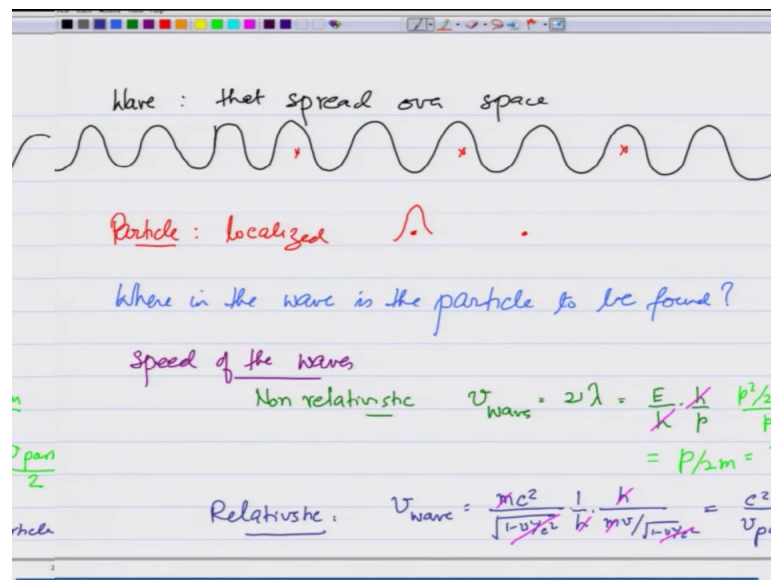 Wave : that spread over space
Particle : localized
Where in the wave is the particle to be found?
Speed of the waves
Non relativistic v_wave = νλ = E/h · h/p p²/2
= p/2m =
v_part/2
Relativistic : v_wave = mc²/√(1-v²/c²) 1/h · h/(mv/√(1-v²/c²)) = c²/v_p